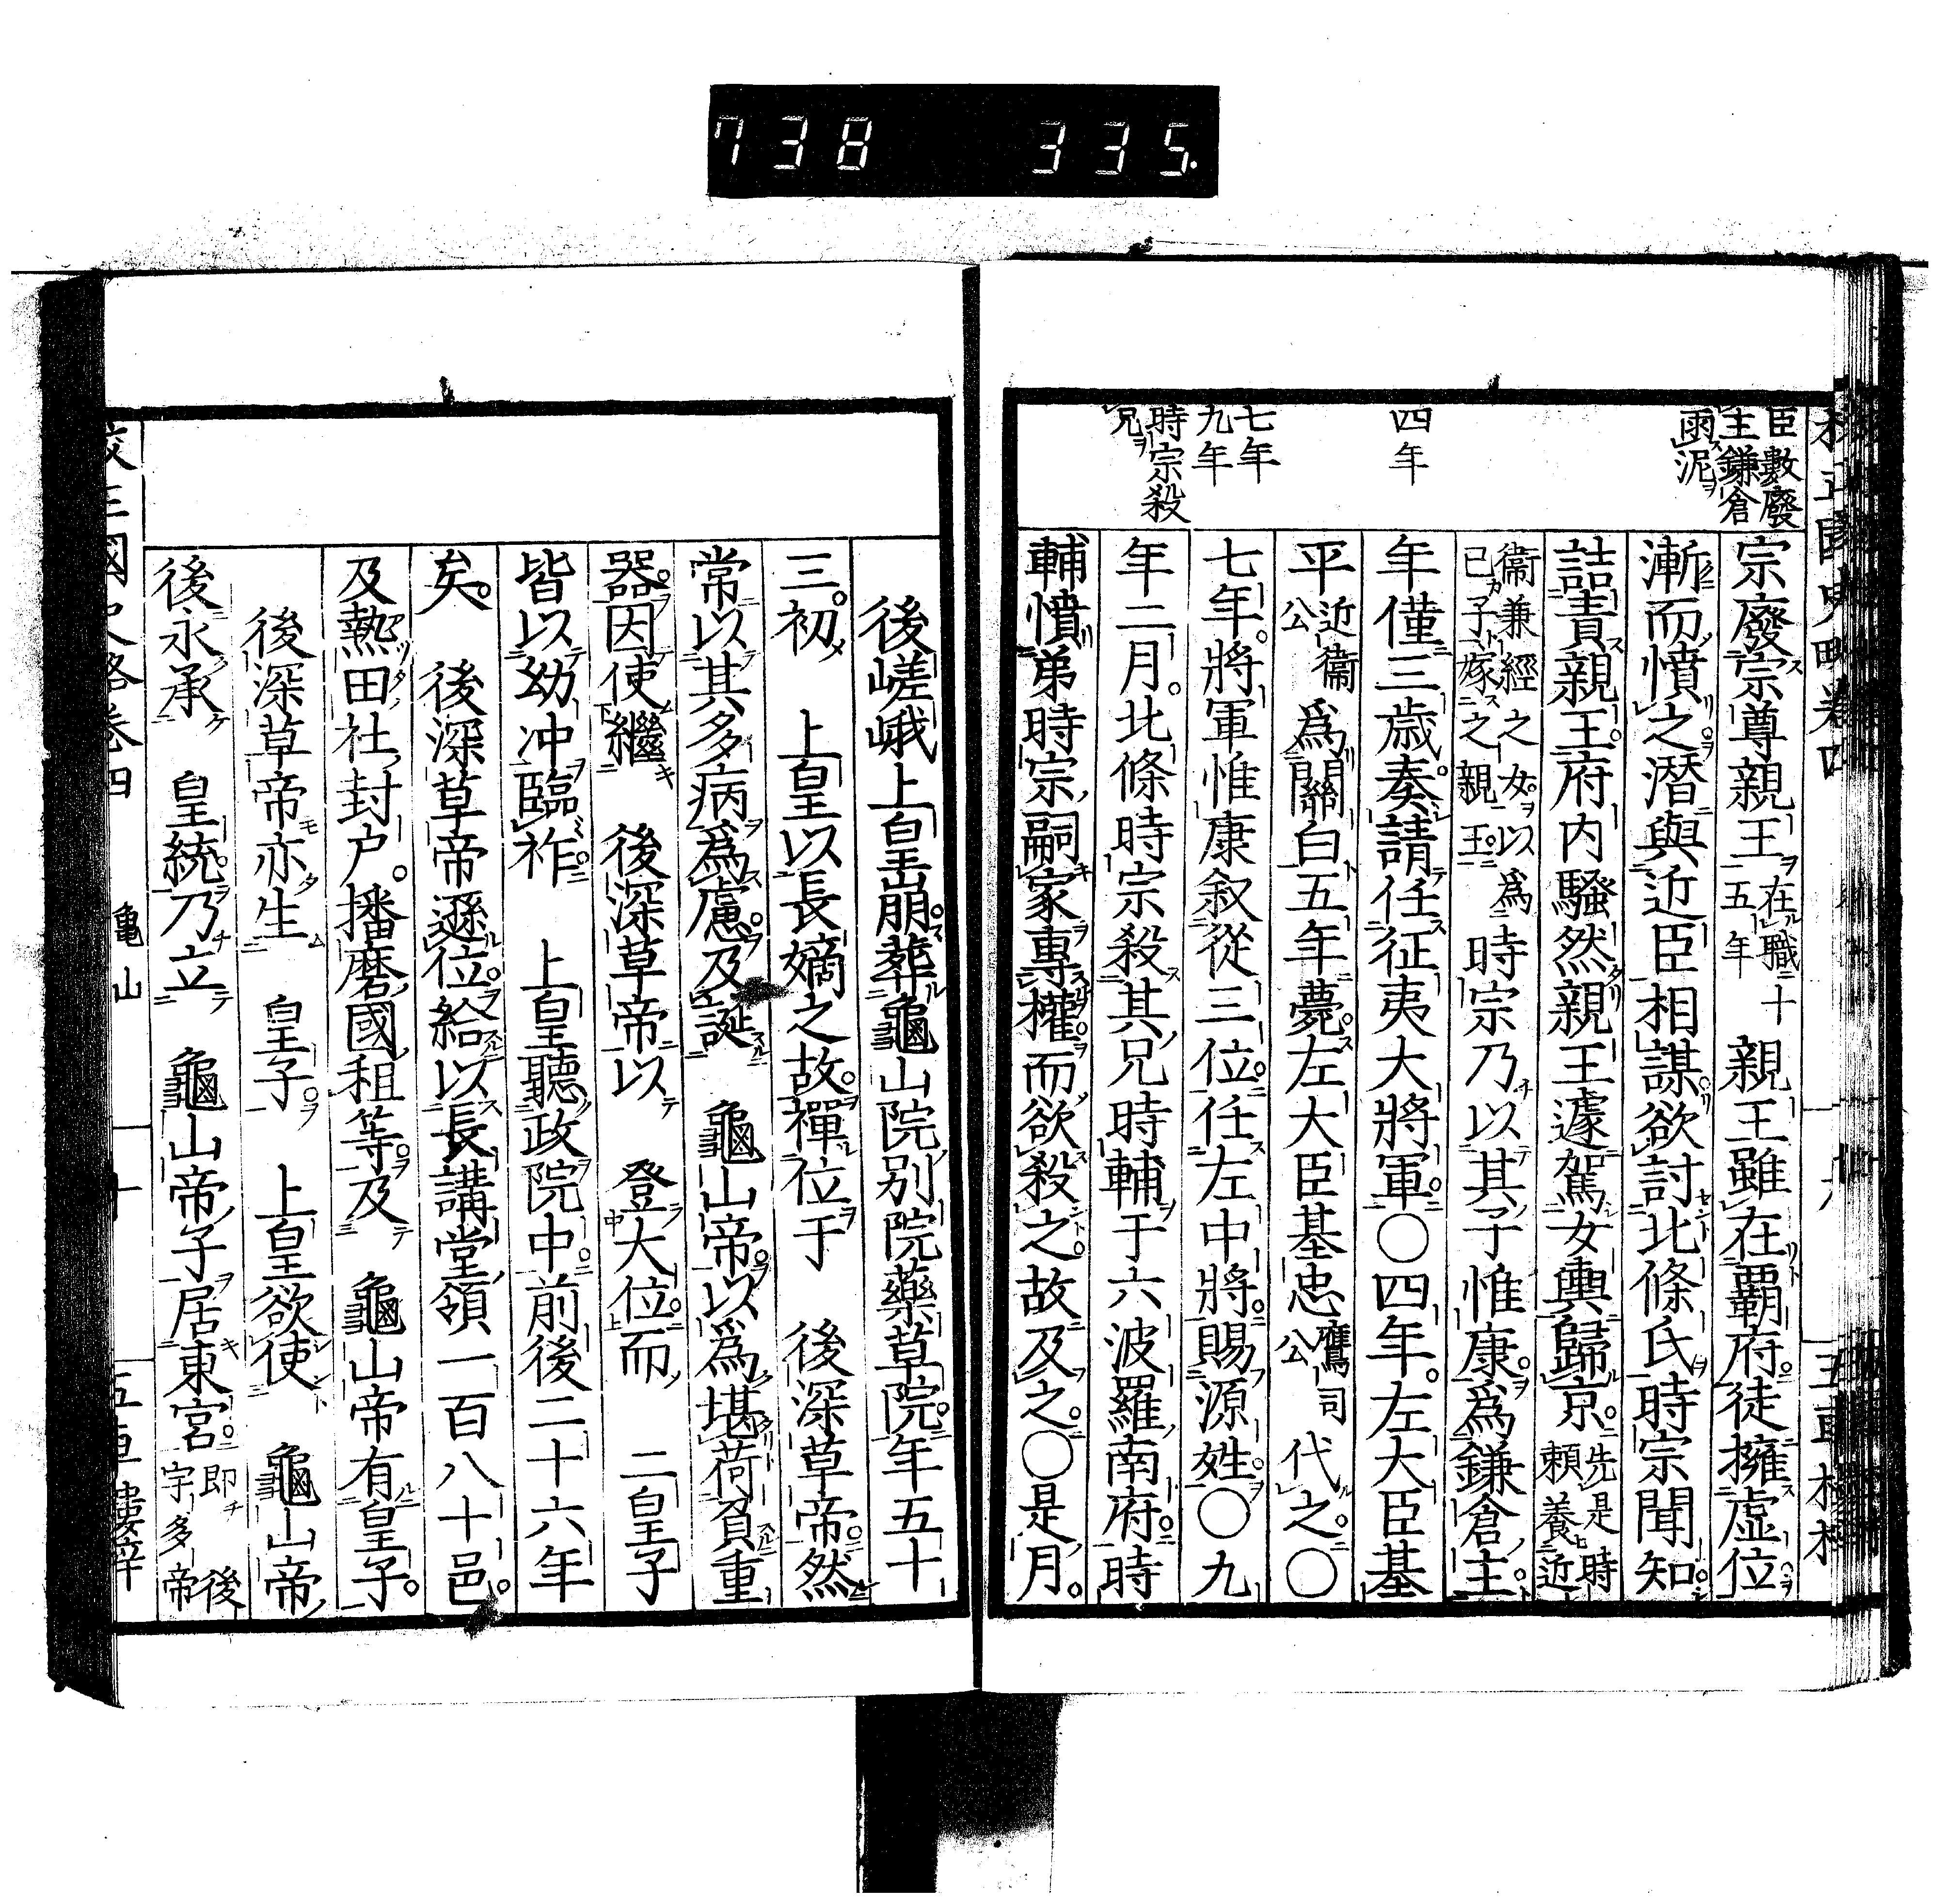 738 335.
臣數廢
主鎌倉
雨泥
四年
七年
九年
時宗殺
兄
宗廢宗尊親王在職十五年親王雖在覇府徒擁虛位
漸而憤之潛與近臣相謀欲討北條氏時宗聞知
詰責親王府内騷然親王遽駕女輿歸京先是時頼養近
衞兼經之女以爲己子嫁之親王時宗乃以其子惟康爲鎌倉主
年僅三歳奏請任征夷大將軍〇四年左大臣基
平近衞公爲關白五年薨左大臣基忠鷹司公代之〇
七年將軍惟康叙從三位任左中將賜源姓〇九
年二月北條時宗殺其兄時輔于六波羅南府時
輔憤弟時宗嗣家專權而欲殺之故及之〇是月
後嵯峨上皇崩葬龜山院別院藥草院年五十
三初上皇以長嫡之故禪位于後深草帝然
常以其多病爲慮及誕龜山帝以爲堪荷負重
器因使繼後深草帝以登大位而二皇子
皆以幼冲臨祚上皇聽政院中前後二十六年
矣後深草帝遜位給以長講堂領一百八十邑
及熱田社封戸播磨國租等及龜山帝有皇子
後深草帝亦生皇子上皇欲使龜山帝
後永承皇統乃立龜山帝子居東宮即後宇多帝
國史略卷四 龜山